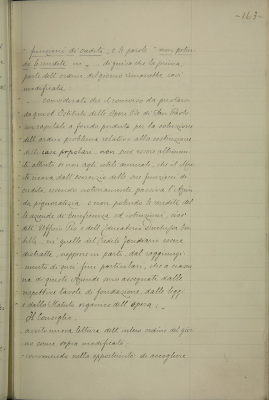 -163-
funzioni di credito, e le parole "non poten
do le rendite ne" - di guisa che la prima
parte dell'ordine del giorno rimarrebbe così
modificata:
- considerato che il concorso da prestarsi
da quest'Istituto delle Opere Pie di San Paolo
in capitale a fondo perduto per la soluzione
dell'arduo problema relativo alla costruzione
delle case popolari, non può essere
attinto se non agli utili annuali, che il
trova dall'esercizio delle sue funzioni di
credito, essendo notoriamente passiva l'Azien
da pignoratizia, e non potendo le rendite del
le aziende di beneficenza ed istruzione, cioè
dell'Ufficio Pio e dell'Educatorio Duchessa Isa
bella, nè quelle del Credito Fondiario essere
distratte, neppure in parte, dal raggiungi
mento di quei fini particolari, che a ciascu
na di queste Aziende sono assegnati dalle
rispettive tavole di fondazione, dalle leggi
e dallo Statuto organico dell'Opera.
Il Consiglio,
avuta nuova lettura dell'intero ordine del gior
no come sopra modificato;
convenendo nella opportunità di accogliere